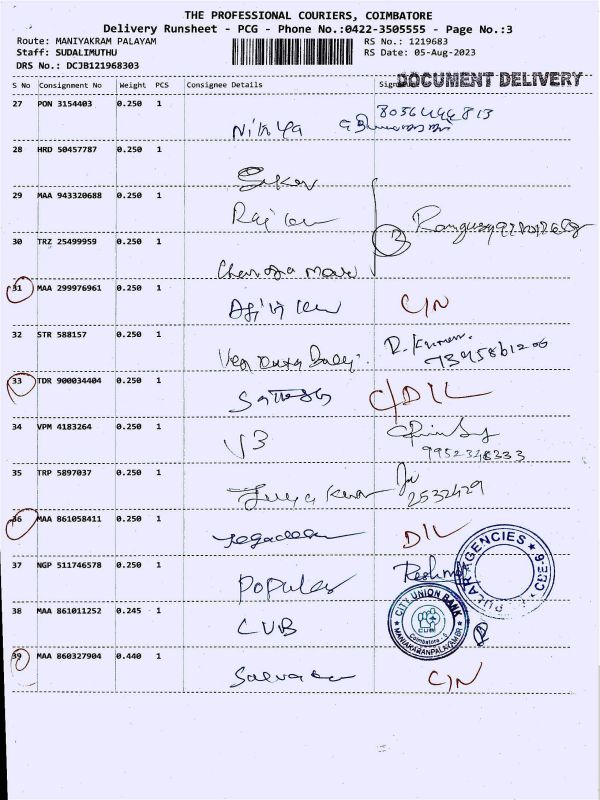 THE PROFESSIONAL COURIERS, COIMBATORE
Delivery Runsheet - PCG - Phone No.:0422-3505555 - Page No.:3
Route: MANIYAKRAM PALAYAM RS No.: 1219683
Staff: SUDALIMUTHU RS Date: 05-Aug-2023
DRS No.: DCJB121968303
DOCUMENT DELIVERY
S No Consignment No Weight PCS Consignee Details
27 PON 3154403 0.250 1
Nithya
28 HRD 50457787 0.250 1
29 MAA 943320688 0.250 1
30 TRZ 25499959 0.250 1
31 MAA 299976961 0.250 1
C/N
32 STR 588157 0.250 1
R. Kumar
33 TDR 900034404 0.250 1
Sathesh C/D/L
34 VPM 4183264 0.250 1
V3
9952348333
35 TRP 5897037 0.250 1
2532429
36 MAA 861058411 0.250 1
Jegadeesan D/L
37 NGP 511746578 0.250 1
Popular Reshma
POPULAR AGENCIES ★ CBE-6 ★
38 MAA 861011252 0.245 1
CUB
CITY UNION BANK
CUB
Coimbatore - 6
MANIAKARANPALAYAM BR
39 MAA 860327904 0.440 1
C/N